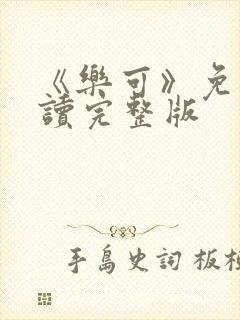 《樂可》免
讀完整版
手島史詞 板橋